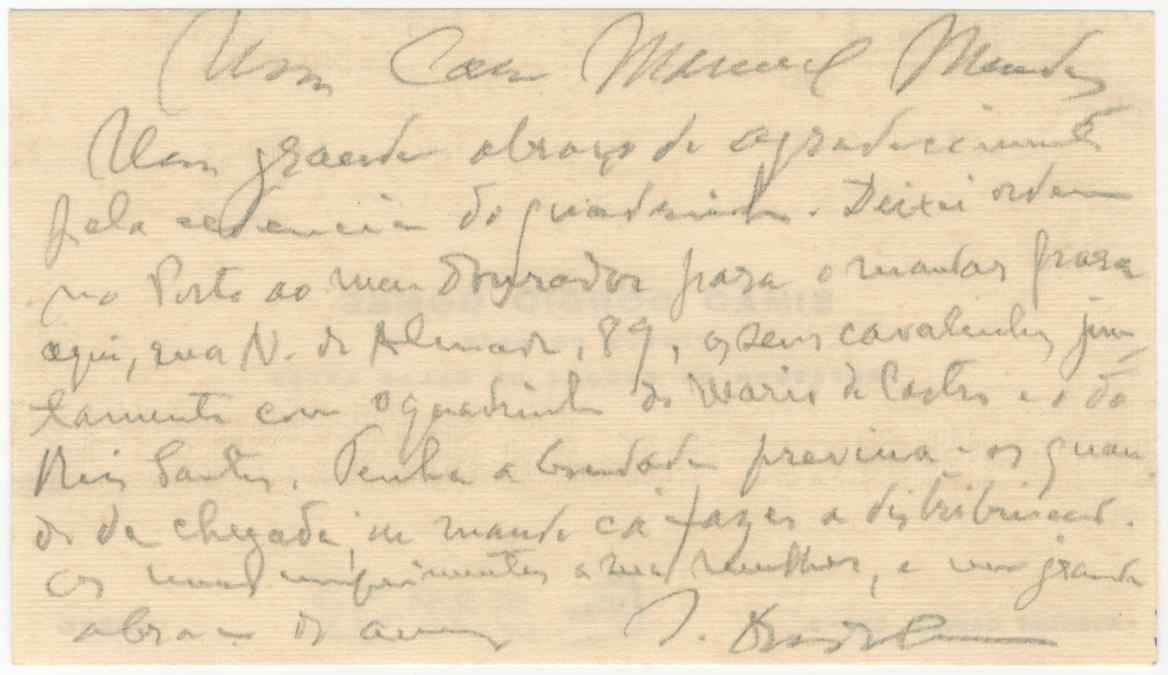 Meu Caro Manuel Mendes
Um grande abraço de agradecimento
pela cedencia do quadrinho. Deixei ordem
no Porto ao meu Dourador para o mandar para
aqui, rua N. de Almada, 89, os seus cavalinhos jun-
tamente com o quadrinho do Mario de Castro e o do
Reis Santos. Tenha a bondade previna-os quan-
do da chegada, ou mande cá fazer a distribuição.
Os meus cumprimentos a sua mulher, e um grande
abraço do amigo